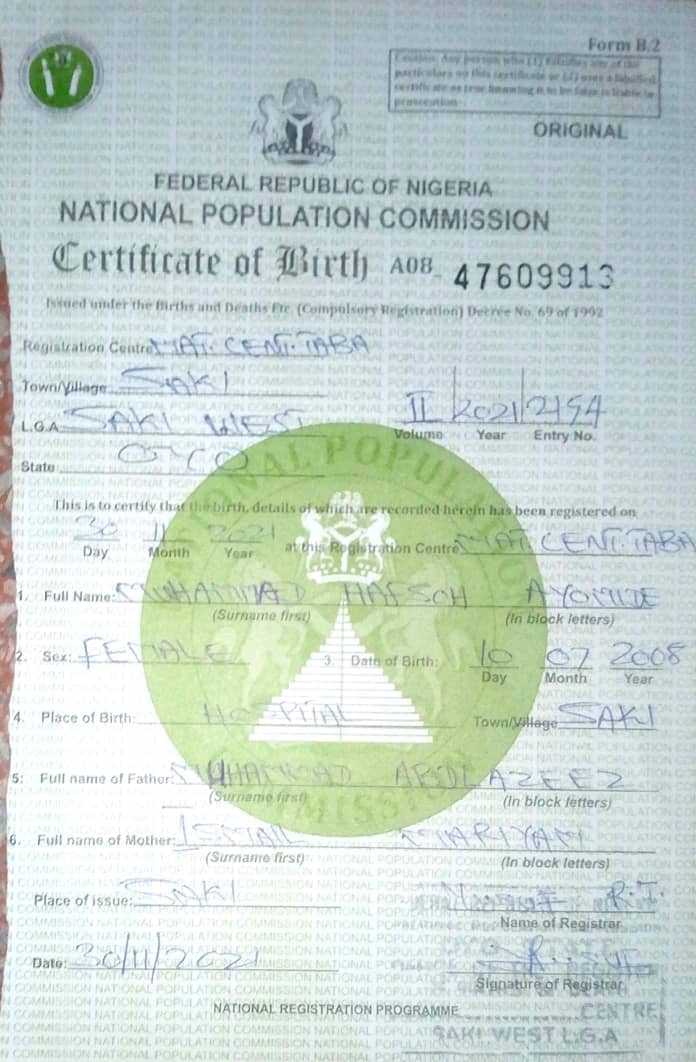 Form B.2
Caution: Any person who (1) falsifies any of the
particulars on this certificate or (2) uses a falsified
certificate as true knowing it to be false is liable to
prosecution
ORIGINAL
FEDERAL REPUBLIC OF NIGERIA
NATIONAL POPULATION COMMISSION
Certificate of Birth A08_ 47609913
Issued under the Births and Deaths Etc. (Compulsory Registration) Decree No. 69 of 1992
Registration Centre MAT. CENT. TABA
Town/Village SAKI
L.G.A SAKI WEST II 2021 2154
Volume Year Entry No.
State OYO
This is to certify that the birth, details of which are recorded herein has been registered on
30 11 2021 at this Registration Centre MAT. CENT. TABA
Day Month Year
1. Full Name: MUHAMMAD HAFSOH AYOMIDE
(Surname first) (In block letters)
2. Sex: FEMALE 3. Date of Birth: 10 07 2008
Day Month Year
4. Place of Birth: HOSPITAL Town/Village SAKI
5: Full name of Father: MUHAMMAD ABDLAZEEZ
(Surname first) (In block letters)
6. Full name of Mother: ISMAIL MARIYAM
(Surname first) (In block letters)
Place of issue: SAKI R.T.
Name of Registrar
Date: 30/11/2021
Signature of Registrar
NATIONAL REGISTRATION PROGRAMME
CENTRE
SAKI WEST L.G.A